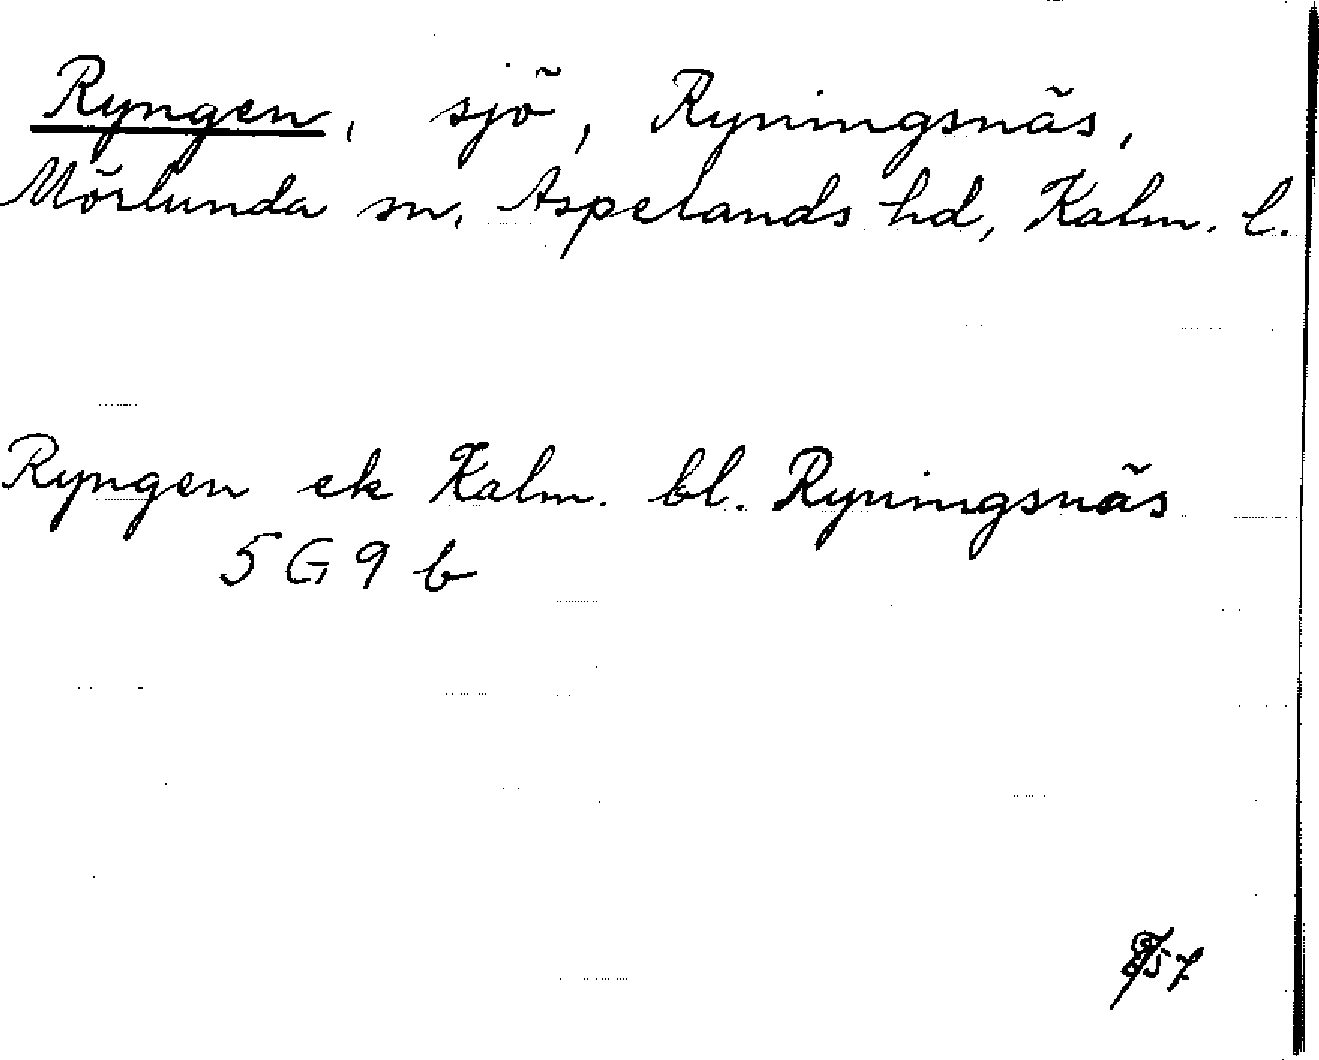 Ryngen, sjö, Ryningsnäs,
Mörlunda sn, Aspelands hd, Kalm. l.
Ryngen ek Kalm. bl. Ryningsnäs
5 G 9 b
57